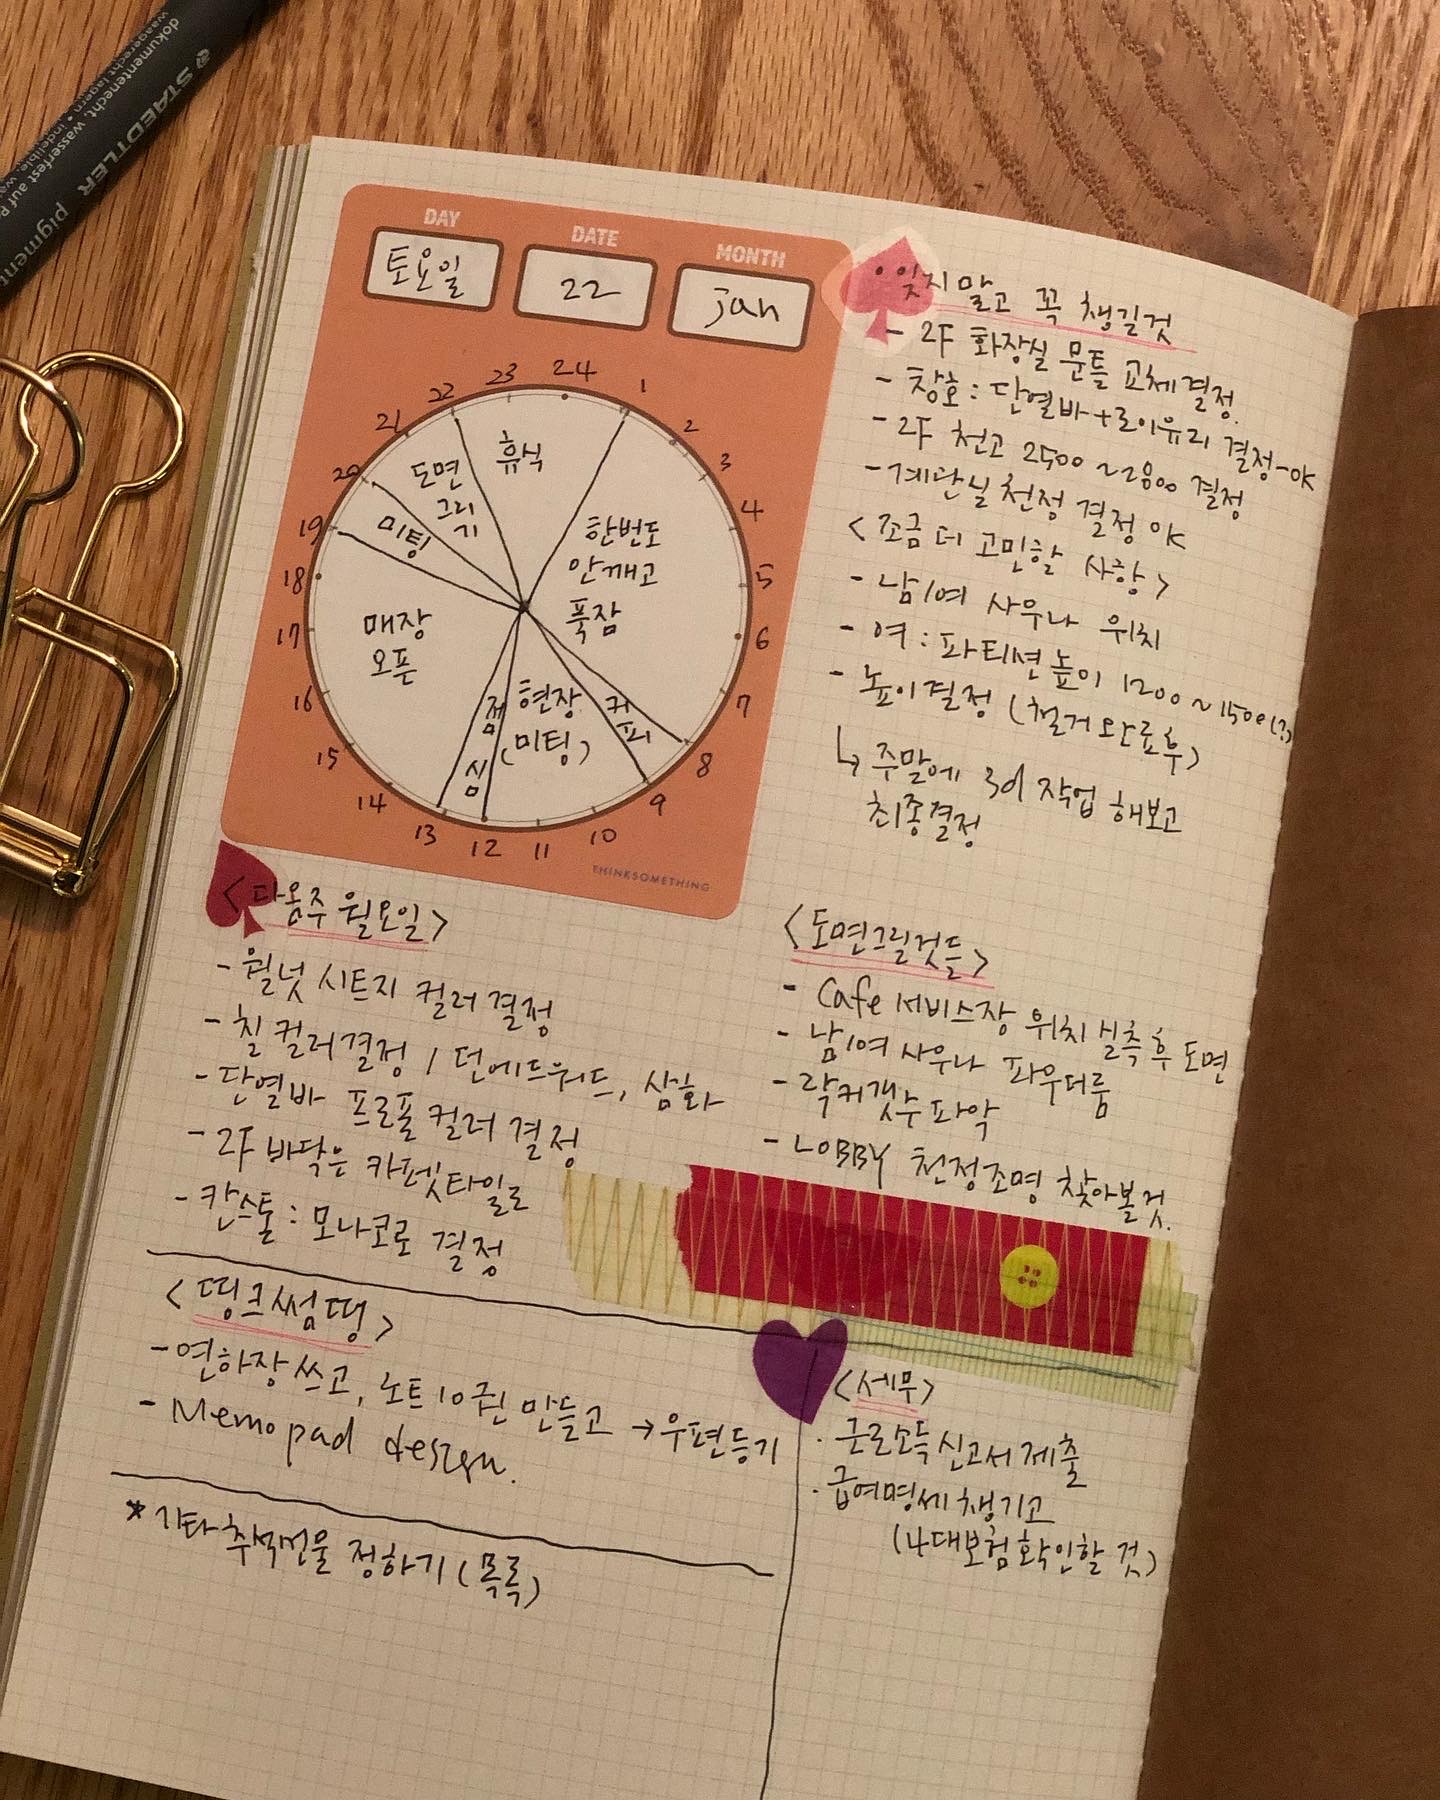 dokumentenecht, wasserfest auf P
waagerecht lagern • indelible, wa
STAEDTLER
pigment
DAY
DATE
MONTH
토요일
22
Jan
24
1
2
3
4
5
6
7
8
9
10
11
12
13
14
15
16
17
18
19
20
21
22
23
휴식
한번도
안깨고
푹잠
커피
현장
(미팅)
점심
매장
오픈
미팅
도면
그리
기
THINKSOMETHING
• 잊지 말고 꼭 챙길것
- 2F 화장실 문틀 교체결정.
- 창호 : 단열바+로이유리 결정-ok
- 2F 천고 2500~2800 결정
- 계단실천정 결정 ok
<조금 더 고민할 사항>
- 남/여 사우나 위치
- 여 : 파티션높이 1200~1500(?)
- 높이결정 (철거완료후)
↳ 주말에 3d 작업 해보고
최종결정
<다음주 월요일>
- 월넛 시트지 컬러결정
- 칠 컬러결정 / 던에드워드, 삼화
- 단열바 프로폴 컬러 결정
- 2F 바닥은 카펫타일로
- 칸스톨 : 모나코로 결정
<도면그릴것들>
- Cafe 서비스장 위치 실측 후 도면
- 남/여 사우나 파우더룸
- 락커갯수 파악
- LOBBY 천정조명 찾아볼것.
<띵크썸띵>
- 연하장 쓰고, 노트 10권 만들고 → 우편등기
- Memo pad design.
<세무>
· 근로소득신고서 제출
· 급여명세 챙기고
(4대보험 확인할 것)
* 기타 추석선물 정하기 (목록)